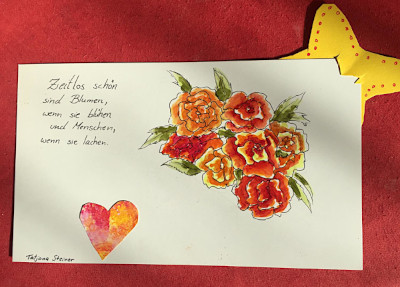 Zeitlos schön
sind Blumen,
wenn sie blühen
und Menschen,
wenn sie lachen.
Tatjana Steiner